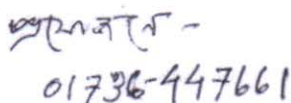 প্রয়োজনে -
01736-447661